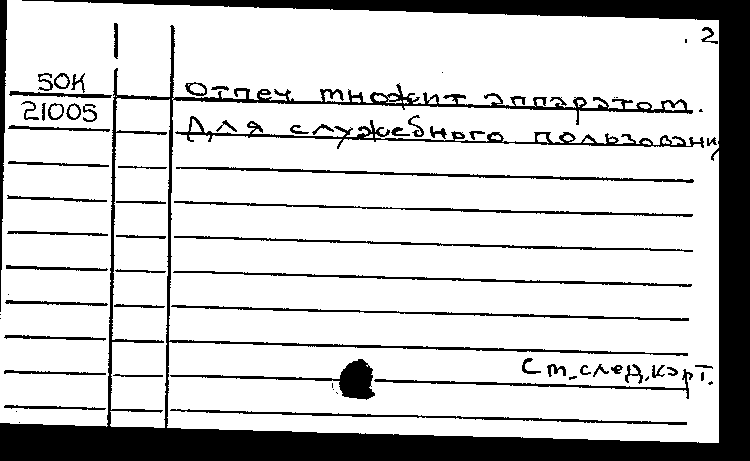 . 2
50К Отпеч. множит. аппаратом.
21005 Для служебного пользовани
См. след. карт.